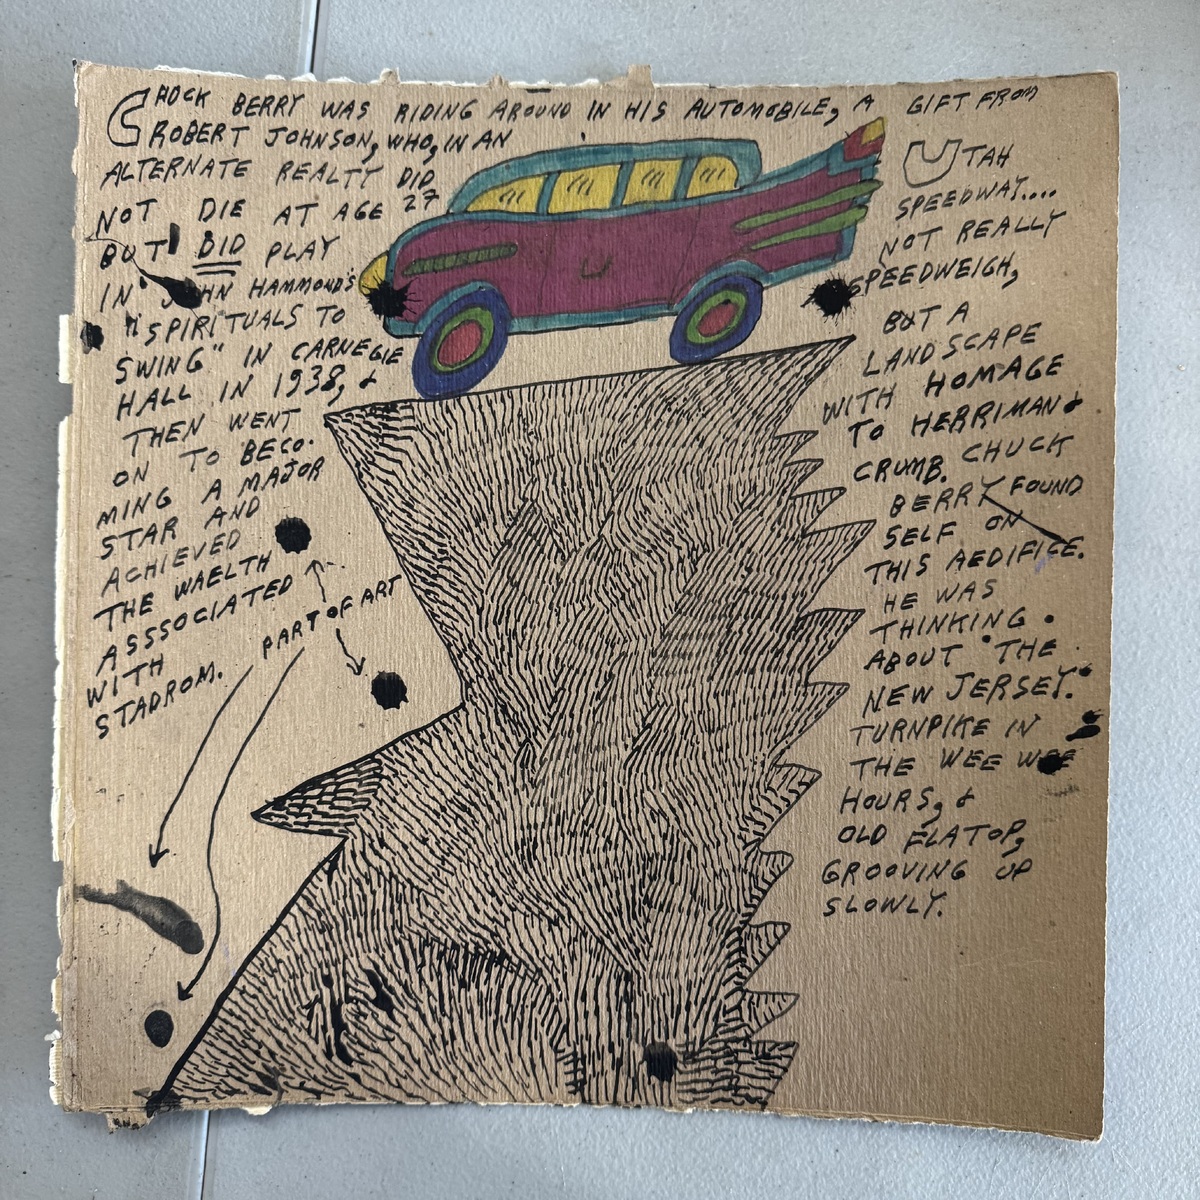 CHOCK BERRY WAS RIDING AROUND IN HIS AUTOMOBILE, A GIFT FROM
ROBERT JOHNSON, WHO, IN AN
ALTERNATE REALTY DID
NOT DIE AT AGE 27
BUT DID PLAY
IN JOHN HAMMOND'S
"SPIRITUALS TO
SWING" IN CARNEGIE
HALL IN 1938, &
THEN WENT
ON TO BECO-
MING A MAJOR
STAR AND
ACHIEVED
THE WAELTH
ASSSOCIATED
WITH
STADROM.
PART OF ART
UTAH
SPEEDWAY....
NOT REALLY
SPEEDWEIGH,
BUT A
LANDSCAPE
WITH HOMAGE
TO HERRIMAN &
CRUMB. CHUCK
BERRY FOUND
SELF ON
THIS AEDIFICE.
HE WAS
THINKING
ABOUT "THE
NEW JERSEY."
TURNPIKE IN
THE WEE WEE
HOURS, &
OLD FLATOP,
GROOVING UP
SLOWLY.